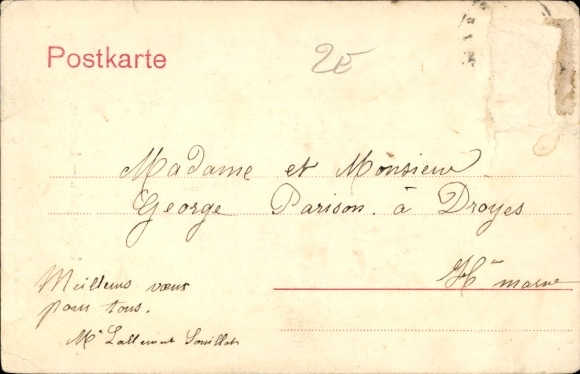 Postkarte
2E
Madame et Monsieur
George Parison. à Droyes
Hte marne
Meilleurs vœux
pour tous.
Me Lallement Souillot